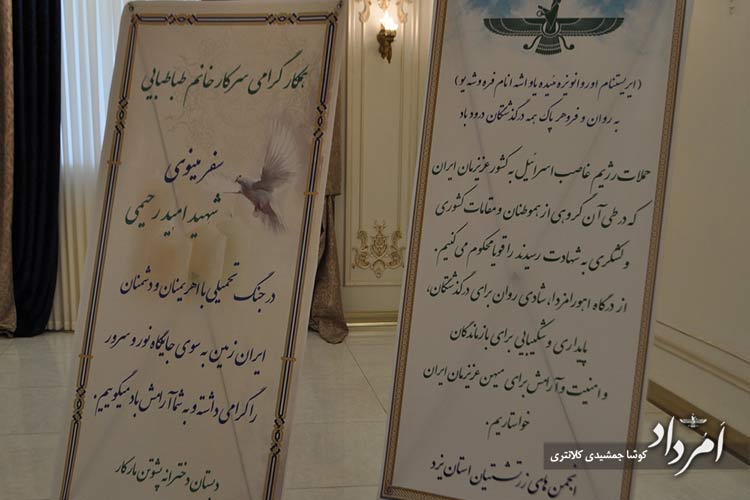 (ایریستنام اوروانو یزه میده یاو اشه انام فره وشه یو)
به روان و فروهر پاک همه درگذشتگان درود باد
حملات رژیم غاصب اسرائیل به کشور عزیزمان ایران
که در طی آن گروهی از هموطنان و مقامات کشوری
و لشکری به شهادت رسیدند را قویا محکوم می کنیم.
از درگاه اهورامزدا، شادی روان برای درگذشتگان،
پایداری و شکیبایی برای بازماندگان
و امنیت و آرامش برای میهن عزیزمان ایران
خواستاریم.
انجمن های زرتشتیان استان یزد
همکار گرامی سرکار خانم طباطبایی
سفر مینوی
شهید امید رحیمی
در جنگ تحمیلی با اهریمنان و دشمنان
ایران زمین به سوی جایگاه نور و سرور
را گرامی داشته و به شما آرامش باد میگوییم.
دبستان دخترانه پشوتن مارکار
اَمُرداد
کوشا جمشیدی کلانتری